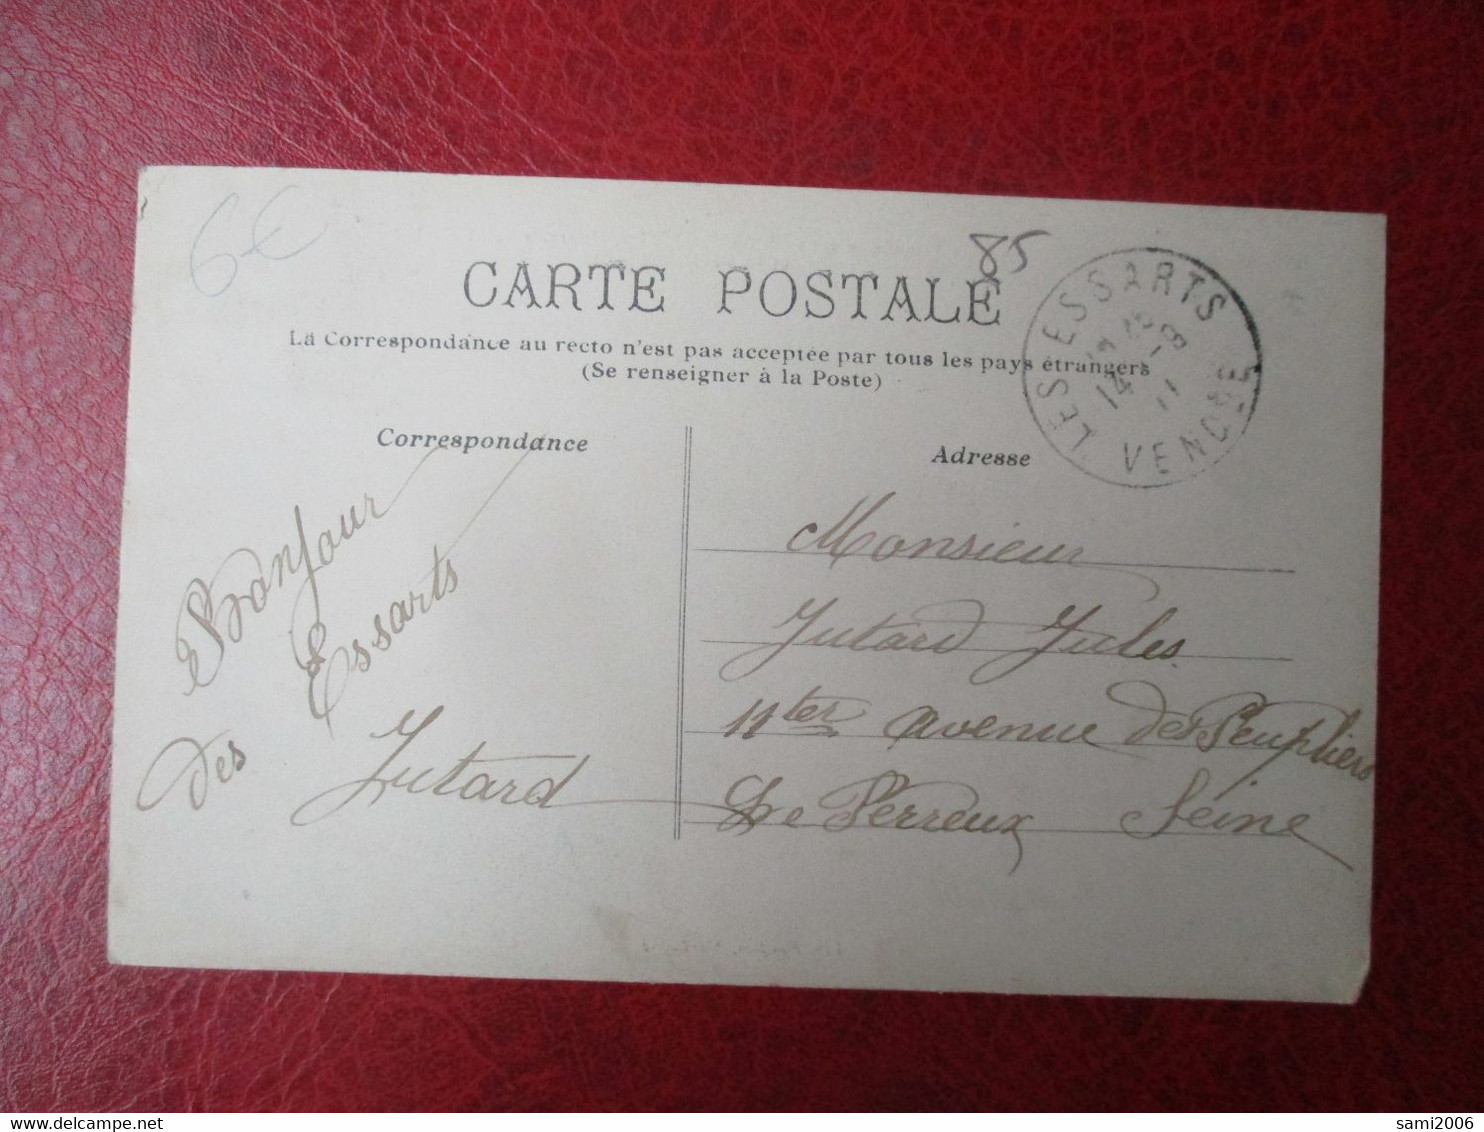 6€
85
CARTE POSTALE
La Correspondance au recto n'est pas acceptée par tous les pays étrangers
(Se renseigner à la Poste)
LES ESSARTS
14 - 8
11
VENDÉE
Correspondance
Bonjour
des Essarts
Jutard
Adresse
Monsieur
Jutard Jules
11ter avenue des Peupliers
Le Perreux Seine
sami2006